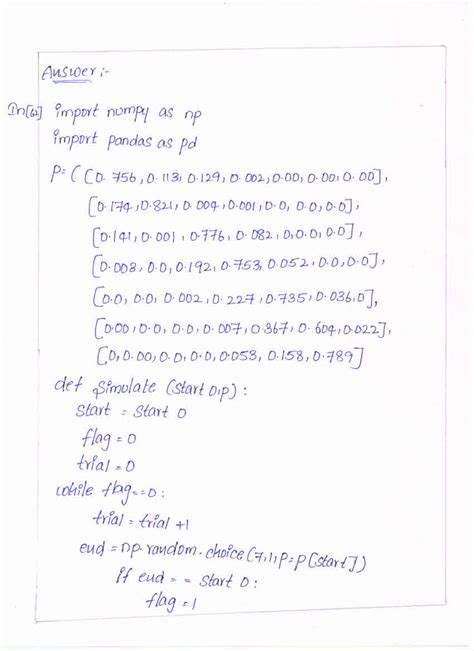 Answer :-
In[62] import numpy as np
import pandas as pd
P= ( [0.756, 0.113, 0.129, 0.002, 0.00, 0.00, 0.00],
[0.174, 0.821, 0.004, 0.001, 0.0, 0.0, 0.0],
[0.141, 0.001, 0.776, 0.082, 0, 0.0, 0.0],
[0.003, 0.0, 0.192, 0.753, 0.052, 0.0, 0.0],
[0.0, 0.0, 0.002, 0.227, 0.735, 0.036, 0],
[0.00, 0.0, 0.0, 0.007, 0.367, 0.604, 0.022],
[0, 0.00, 0.0, 0.0, 0.053, 0.158, 0.789]
def Simulate (Start 0,p) :
Start = Start 0
flag = 0
trial = 0
while flag==0 :
trial = trial +1
end = np.random.choice(7,1,P=P[Start])
If end = = Start 0 :
flag = 1